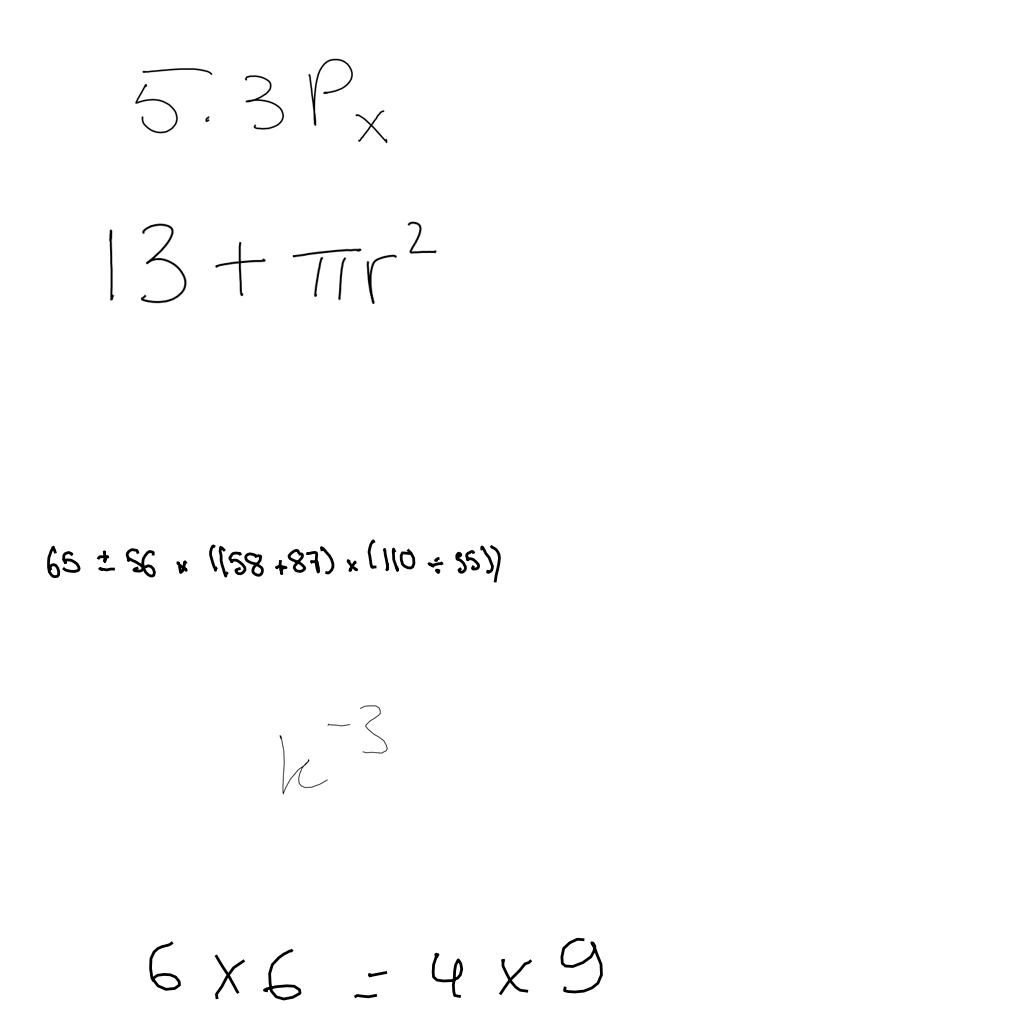 5.3P_x
13 + πr²
65 ± 56 × ((58 + 87) × (110 ÷ 55))
k⁻³
6 × 6 = 4 × 9